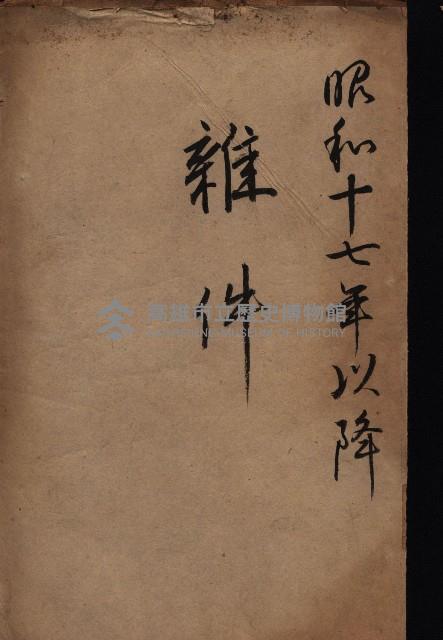 昭和十七年以降
雜件
高雄市立歷史博物館
KAOHSIUNG MUSEUM OF HISTORY